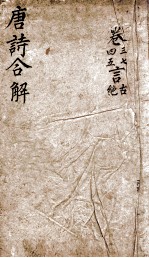 唐詩合解
卷三四七五言古絶